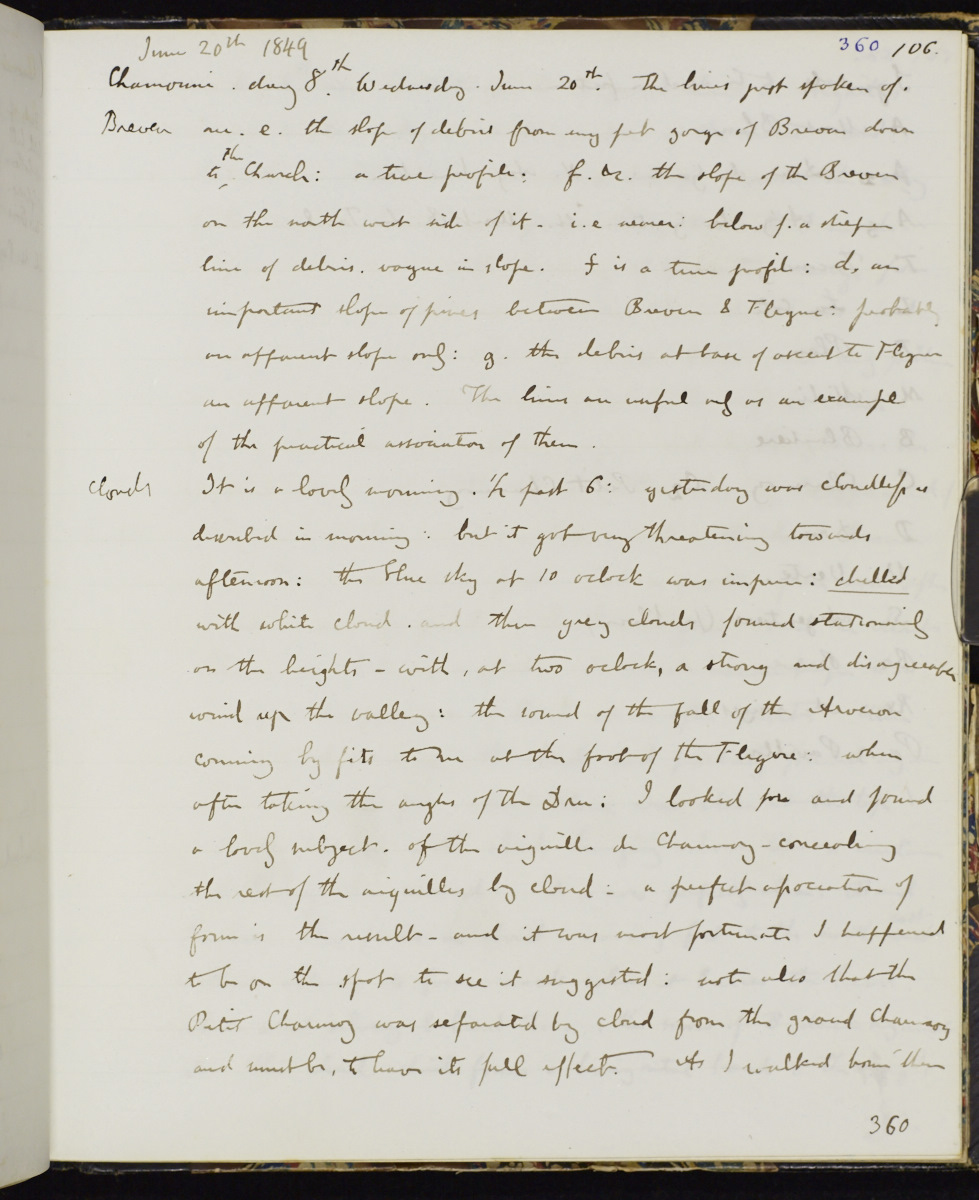 June 20th 1849
360 106.
Chamouni. day 8th. Wednesday. June 20th. The lines just spoken of.
Breven are. e. the slope of debris from my pet gorge of Breven down
to the Church: a true profile: f. &c. the slope of the Breven
on the north west side of it - i.e nearer: below f. a steeper
line of debris. vague in slope. f is a true profile: d, an
important slope of pines between Breven & Flegere: probably
an apparent slope only: g. the debris at base of ascent to Flegere
an apparent slope. The lines are useful only as an example
of the practical association of them.
Clouds It is a lovely morning. 1/2 past 6: yesterday was cloudless as
described in morning: but it got very threatening towards
afternoon: the blue sky at 10 oclock was impure: chilled
with white cloud. and then grey clouds formed stationarily
on the heights - with, at two oclock, a strong and disagreeable
wind up the valley: the sound of the fall of the Arveron
coming by fits to me at the foot of the Flegere: when
after taking the angles of the Dru: I looked for and found
a lovely subject. of the aiguille de Charmoz - concealing
the rest of the aiguilles by cloud: a perfect association of
form is the result - and it was most fortunate I happened
to be on the spot to see it suggested: note also that the
Petit Charmoz was separated by cloud from the grand Charmoz
and must be, to have its full effect. As I walked home then
360